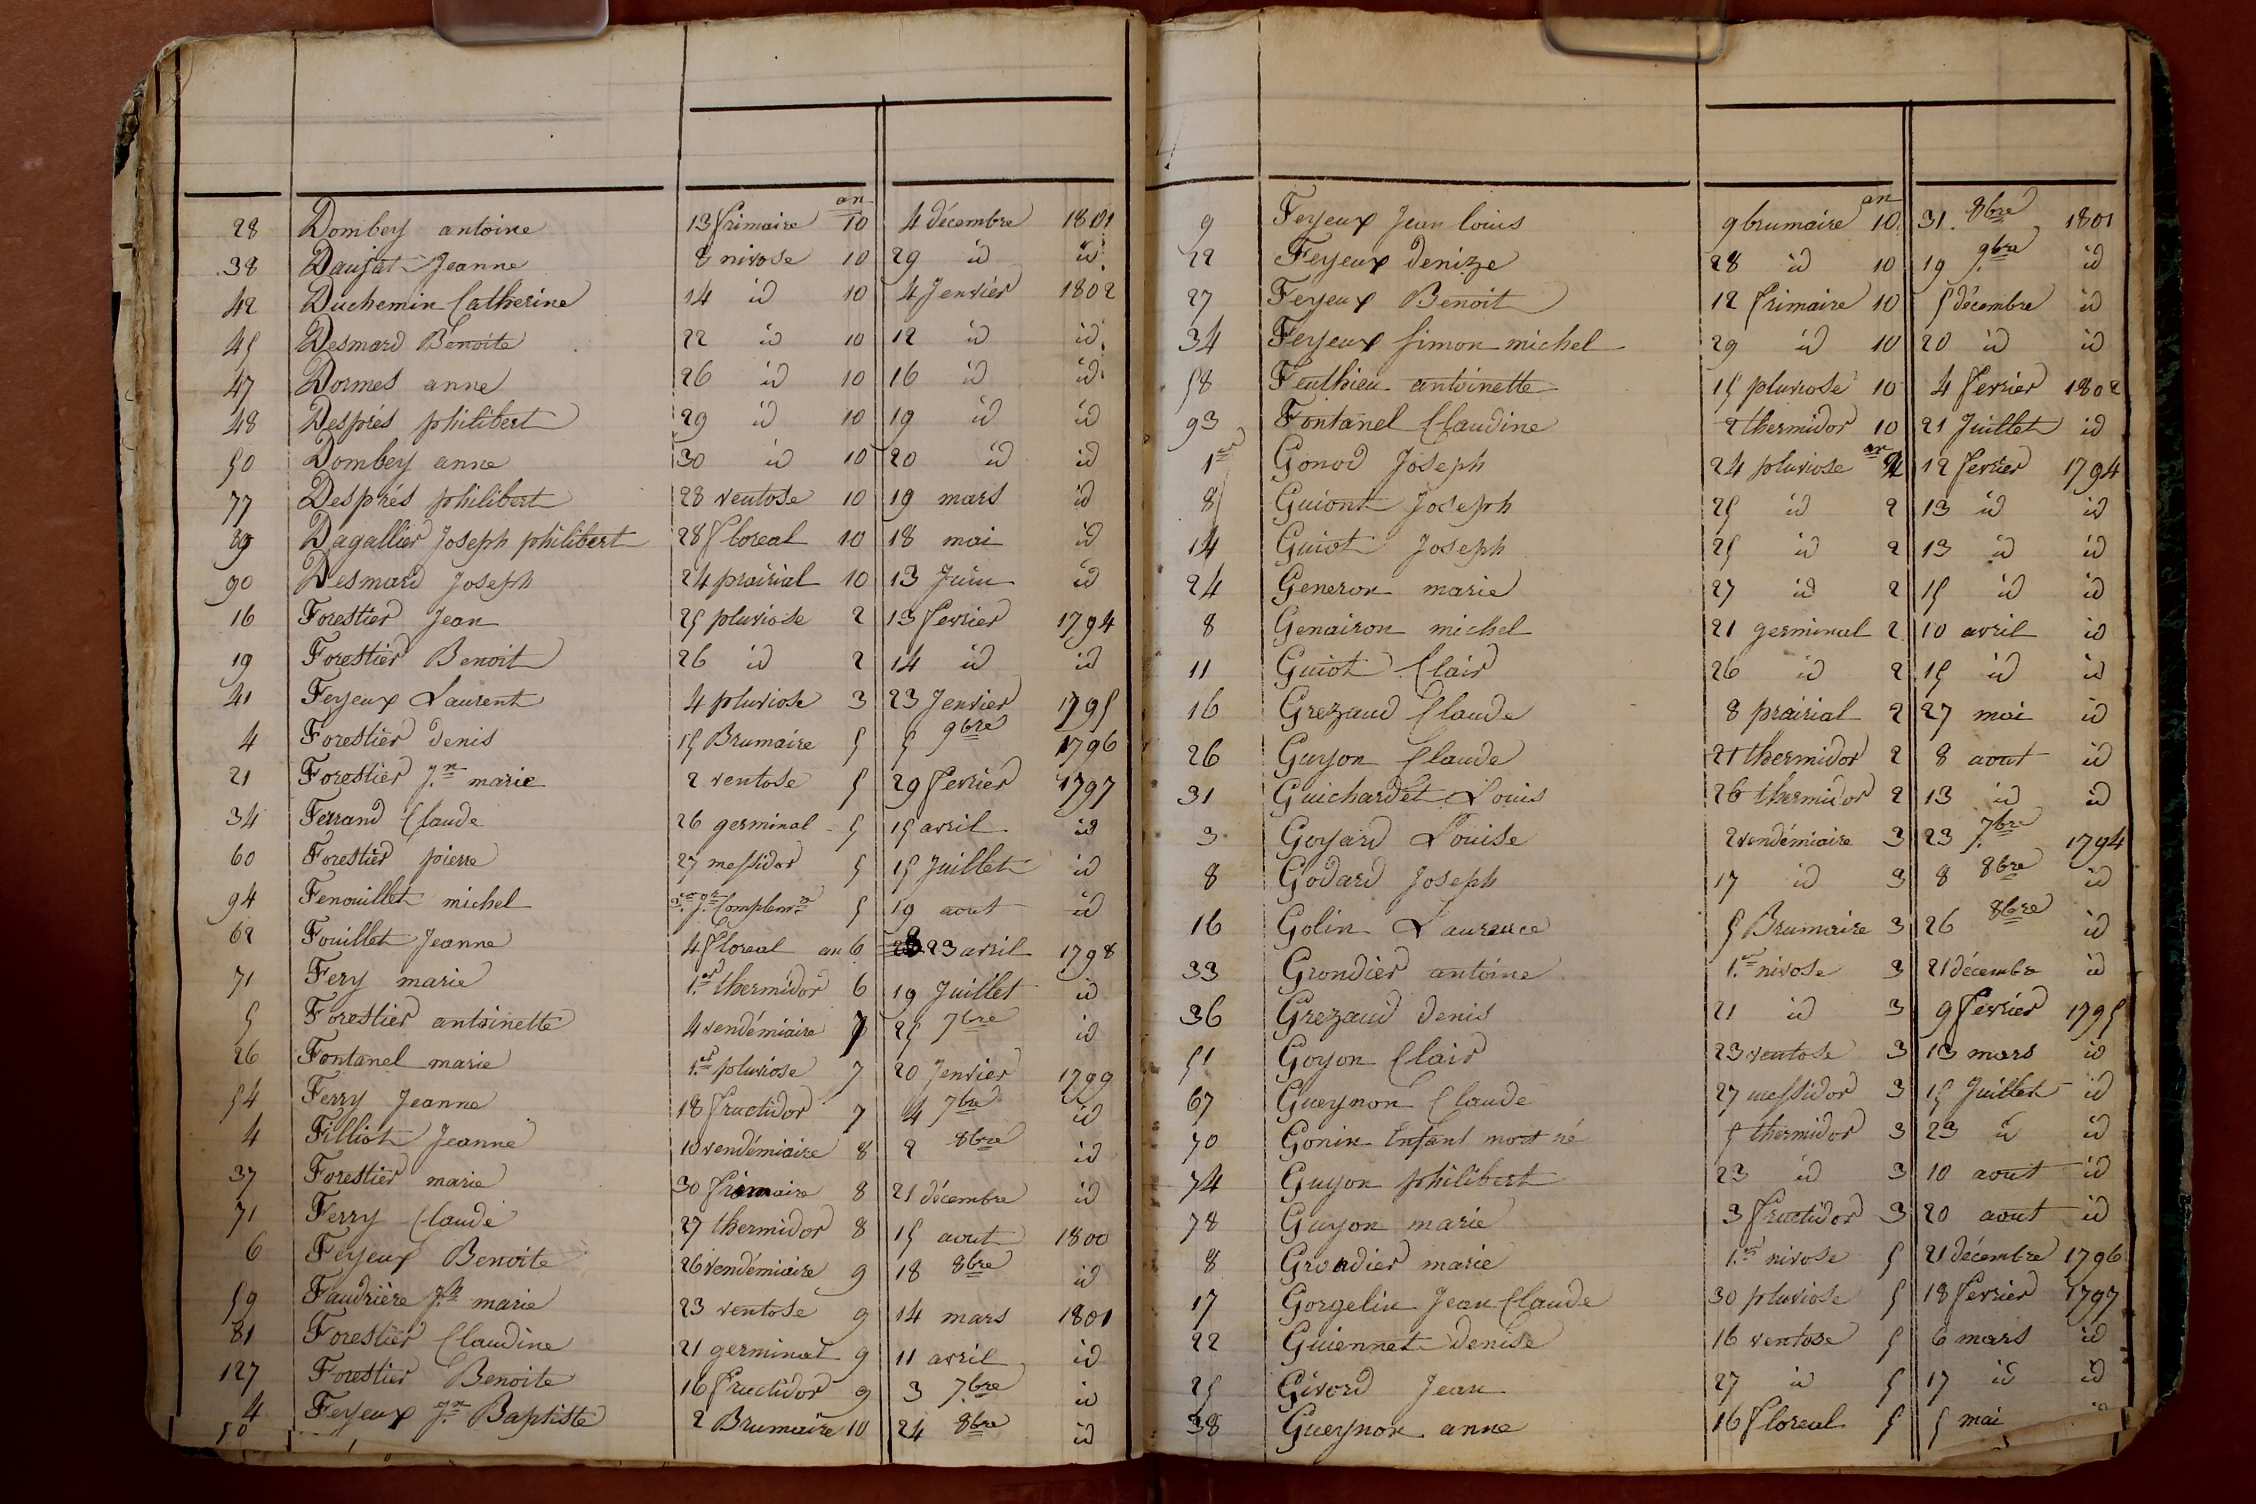 28 Dombey antoine 13 frimaire an 10 4 décembre 1801
38 Daujat Jeanne 8 nivose 10 29 id id
42 Duchemin Catherine 14 id 10 4 Jenvier 1802
45 Desmard Benoite 22 id 10 12 id id
47 Dormes anne 26 id 10 16 id id
48 Després philibert 29 id 10 19 id id
50 Dombey anne 30 id 10 20 id id
77 Després philibert 28 ventose 10 19 mars id
89 Dagallier Joseph philibert 28 floreal 10 18 mai id
90 Desmard Joseph 24 prairial 10 13 Juin id
16 Forestier Jean 25 pluviose 2 13 fevrier 1794
19 Forestier Benoit 26 id 2 14 id id
41 Feyeux Laurent 4 pluviose 3 23 Jenvier 1795
4 Forestier denis 15 Brumaire 5 5 9bre 1796
21 Forestier J.n marie 2 ventose 5 29 fevrier 1797
34 Ferrand Claude 26 germinal 5 15 avril id
60 Forestier pierre 27 messidor 5 15 Juillet id
94 Fenouillet michel J. Complem.re 5 19 aout id
62 Fouillet Jeanne 4 floreal an 6 23 avril 1798
71 Fery marie 1.er thermidor 6 19 Juillet id
5 Forestier antoinette 4 vendémiaire 7 25 7bre id
26 Fontanel marie 1.er pluviose 7 20 Jenvier 1799
54 Ferry Jeanne 18 fructidor 7 4 7bre id
4 Filliot Jeanne 10 vendémiaire 8 2 8bre id
37 Forestier marie 30 frimaire 8 21 décembre id
71 Ferry Claude 27 thermidor 8 15 aout 1800
6 Feyeux Benoite 26 vendémiaire 9 18 8bre id
59 Faudrière marie 23 ventose 9 14 mars 1801
81 Forestier Claudine 21 germinal 9 11 avril id
127 Forestier Benoite 16 fructidor 9 3 7.bre id
4 Feyeux J.n Baptiste 2 Brumaire 10 24 8bre id
9 Feyeux Jean louis 9 brumaire an 10 31 8bre 1801
22 Feyeux denize 28 id 10 19 9bre id
27 Feyeux Benoit 12 frimaire 10 5 décembre id
34 Feyeux Simon michel 29 id 10 20 id id
58 Feuthieu antoinette 15 pluviose 10 4 fevrier 1802
93 Fontanel Claudine 2 thermidor 10 21 Juillet id
1er Gonod Joseph 24 pluviose an 2 12 fevrier 1794
8 Guiont Joseph 25 id 2 13 id id
14 Guiot Joseph 25 id 2 13 id id
24 Generon marie 27 id 2 15 id id
8 Genairon michel 21 germinal 2 10 avril id
11 Guiot Clair 26 id 2 15 id id
16 Grezaud Claude 8 prairial 2 27 mai id
26 Guyon Claude 21 thermidor 2 8 aout id
31 Guichardet Louis 26 thermidor 2 13 id id
3 Goyard Louise 2 vendémiaire 3 23 7.bre 1794
8 Godard Joseph 17 id 3 8 8bre id
16 Golin Laurence 5 Brumaire 3 26 8bre id
33 Grondier antoine 1.er nivose 3 21 décembre id
36 Grezaud denis 21 id 3 9 fevrier 1795
51 Goyon Clair 23 ventose 3 13 mars id
67 Gueynon Claude 27 messidor 3 15 Juillet id
70 Gonin Enfant mort né 5 thermidor 3 23 id id
74 Guyon philibert 23 id 3 10 aout id
78 Guyon marie 3 fructidor 3 20 aout id
8 Grondier marie 1.er nivose 5 21 décembre 1796
17 Gorgelin Jean Claude 30 pluviose 5 18 fevrier 1797
22 Guiennet Denise 16 ventose 5 6 mars id
25 Givord Jean 27 id 5 17 id id
38 Gueynon anne 16 floreal 5 5 mai